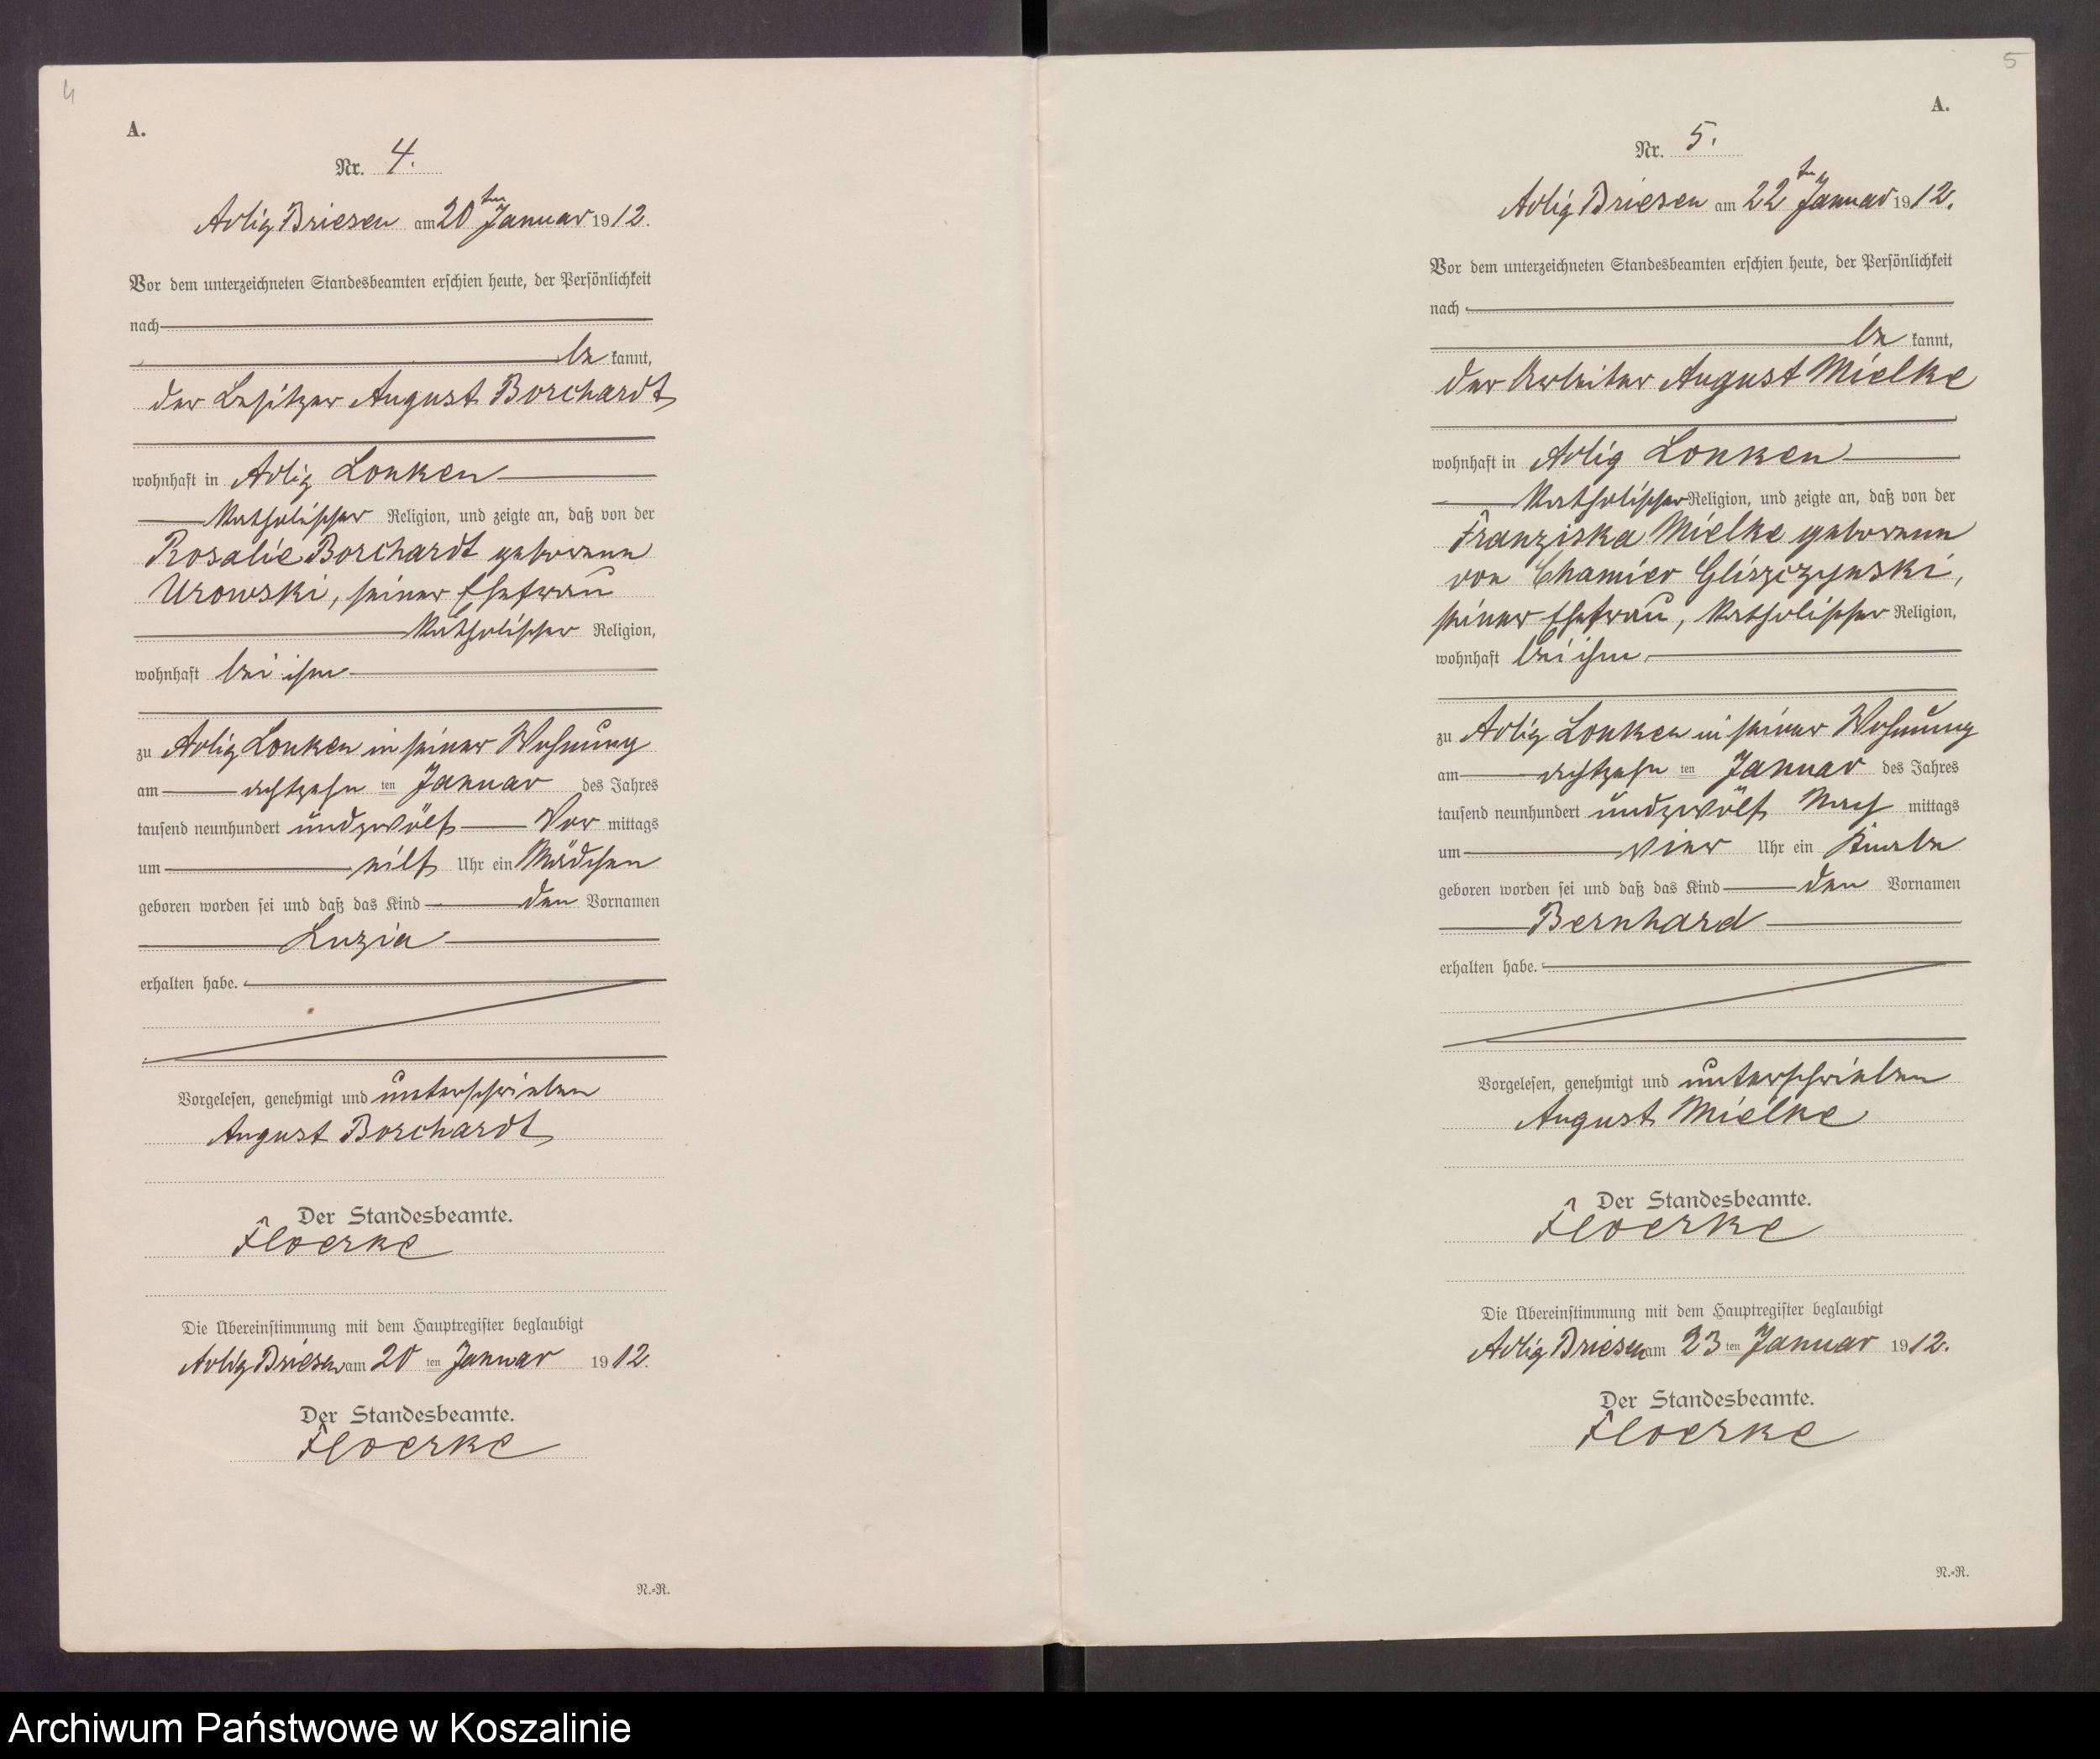 4
A.
Nr. 4.
Adlig Briesen am 20ten Januar 1912.
Vor dem unterzeichneten Standesbeamten erschien heute, der Persönlichkeit
nach
be kannt,
der Besitzer August Borchardt
wohnhaft in Adlig Lonken
katholischer Religion, und zeigte an, daß von der
Rosalie Borchardt geborenen
Urowski, seiner Ehefrau
katholischer Religion,
wohnhaft bei ihm
zu Adlig Lonken in seiner Wohnung
am achtzehn ten Januar des Jahres
tausend neunhundert undzwölf Vor mittags
um eilf Uhr ein Mädchen
geboren worden sei und daß das Kind den Vornamen
Luzia
erhalten habe.
Vorgelesen, genehmigt und unterschrieben
August Borchardt
Der Standesbeamte.
Floerke
Die Übereinstimmung mit dem Hauptregister beglaubigt
Adlig Briesen am 20 ten Januar 1912.
Der Standesbeamte.
Floerke
N.-R.
5
A.
Nr. 5.
Adlig Briesen am 22ten Januar 1912.
Vor dem unterzeichneten Standesbeamten erschien heute, der Persönlichkeit
nach
be kannt,
der Arbeiter August Mielke
wohnhaft in Adlig Lonken
katholischer Religion, und zeigte an, daß von der
Franziska Mielke geborenen
von Chamier Gliszczynski,
seiner Ehefrau, katholischer Religion,
wohnhaft bei ihm
zu Adlig Lonken in seiner Wohnung
am achtzehn ten Januar des Jahres
tausend neunhundert undzwölf Nach mittags
um vier Uhr ein Knabe
geboren worden sei und daß das Kind den Vornamen
Bernhard
erhalten habe.
Vorgelesen, genehmigt und unterschrieben
August Mielke
Der Standesbeamte.
Floerke
Die Übereinstimmung mit dem Hauptregister beglaubigt
Adlig Briesen am 23 ten Januar 1912.
Der Standesbeamte.
Floerke
N.-R.
Archiwum Państwowe w Koszalinie